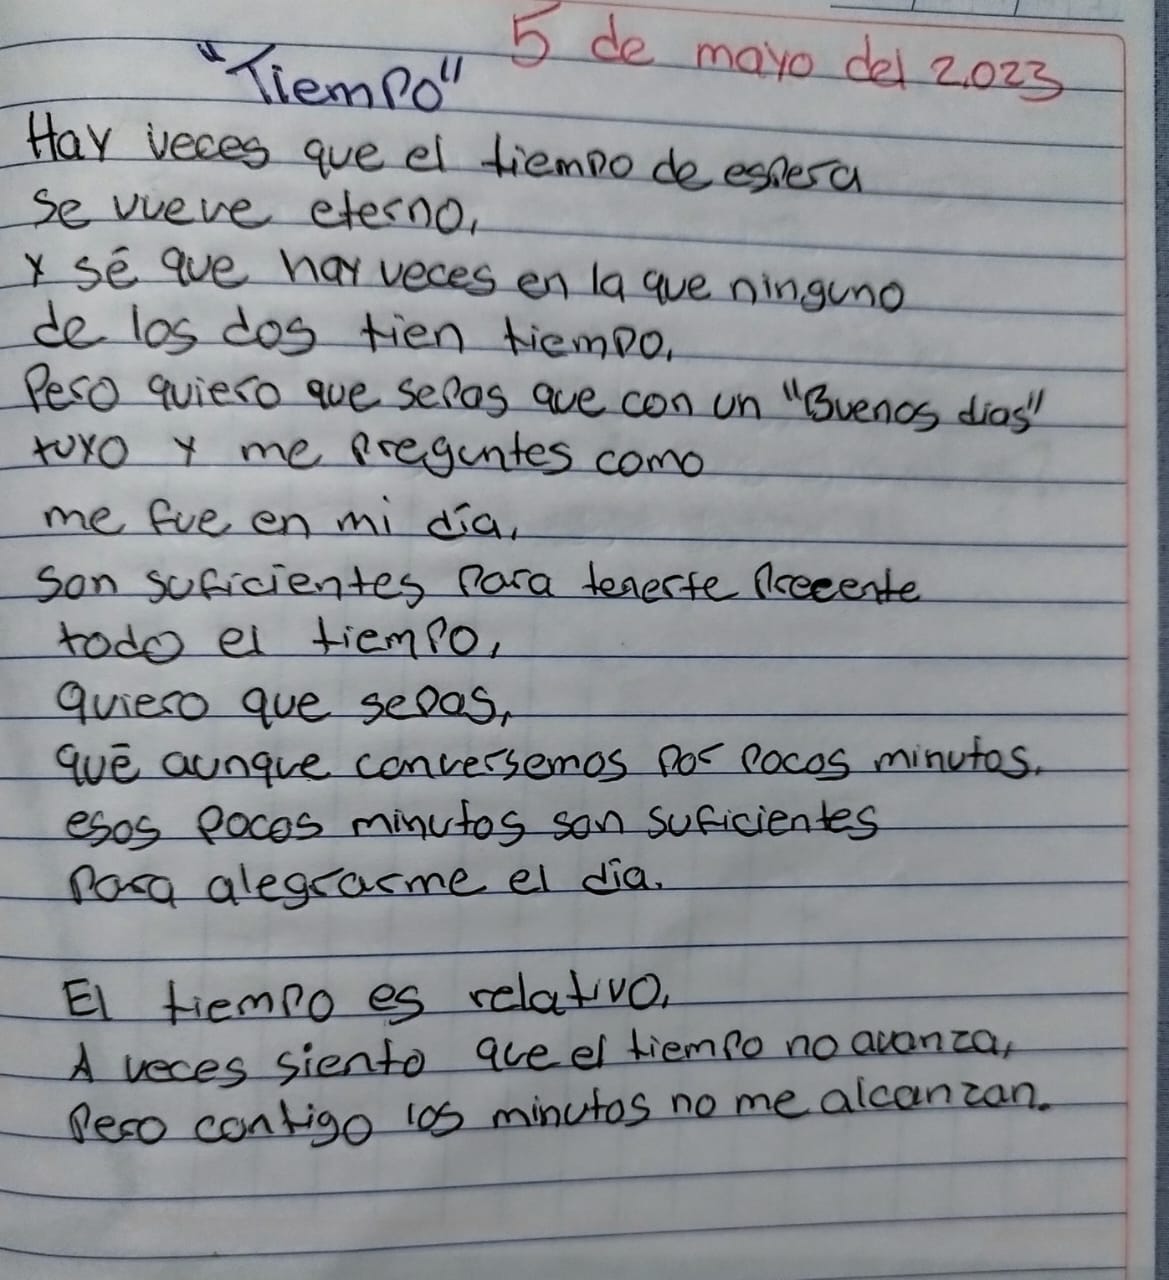 5 de mayo del 2.023
"Tiempo"
Hay veces que el tiempo de espera
se vueve eterno,
y sé que hay veces en la que ninguno
de los dos tien tiempo,
Pero quiero que sepas que con un "Buenos dias"
tuyo y me preguntes como
me fue en mi día,
son suficientes para tenerte preeente
todo el tiempo,
quiero que sepas,
qué aunque conversemos por pocos minutos.
esos pocos minutos son suficientes
para alegrarme el dia.
El tiempo es relativo,
A veces siento que el tiempo no avanza,
Pero contigo los minutos no me alcanzan.